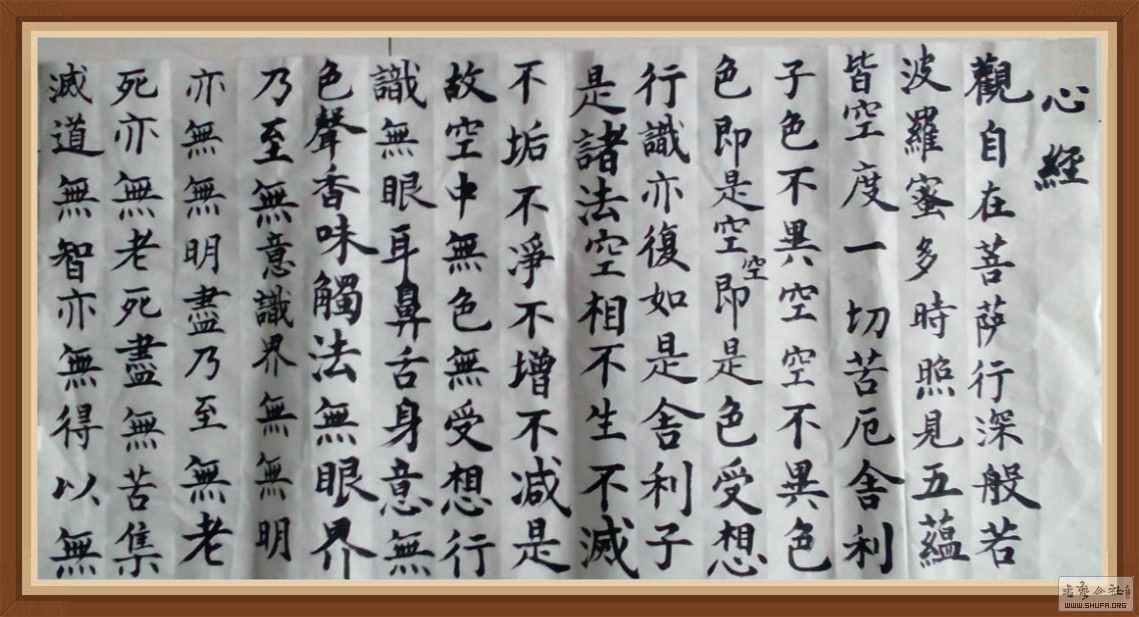 心經
觀自在菩萨行深般若
波羅蜜多時照見五蘊
皆空度一切苦厄舍利
子色不異空空不異色
色即是空空即是色受想
行識亦復如是舍利子
是諸法空相不生不滅
不垢不淨不增不减是
故空中無色無受想行
識無眼耳鼻舌身意無
色聲香味觸法無眼界
乃至無意識界無無明
亦無無明盡乃至無老
死亦無老死盡無苦集
滅道無智亦無得以無
WWW.SHUFA.ORG